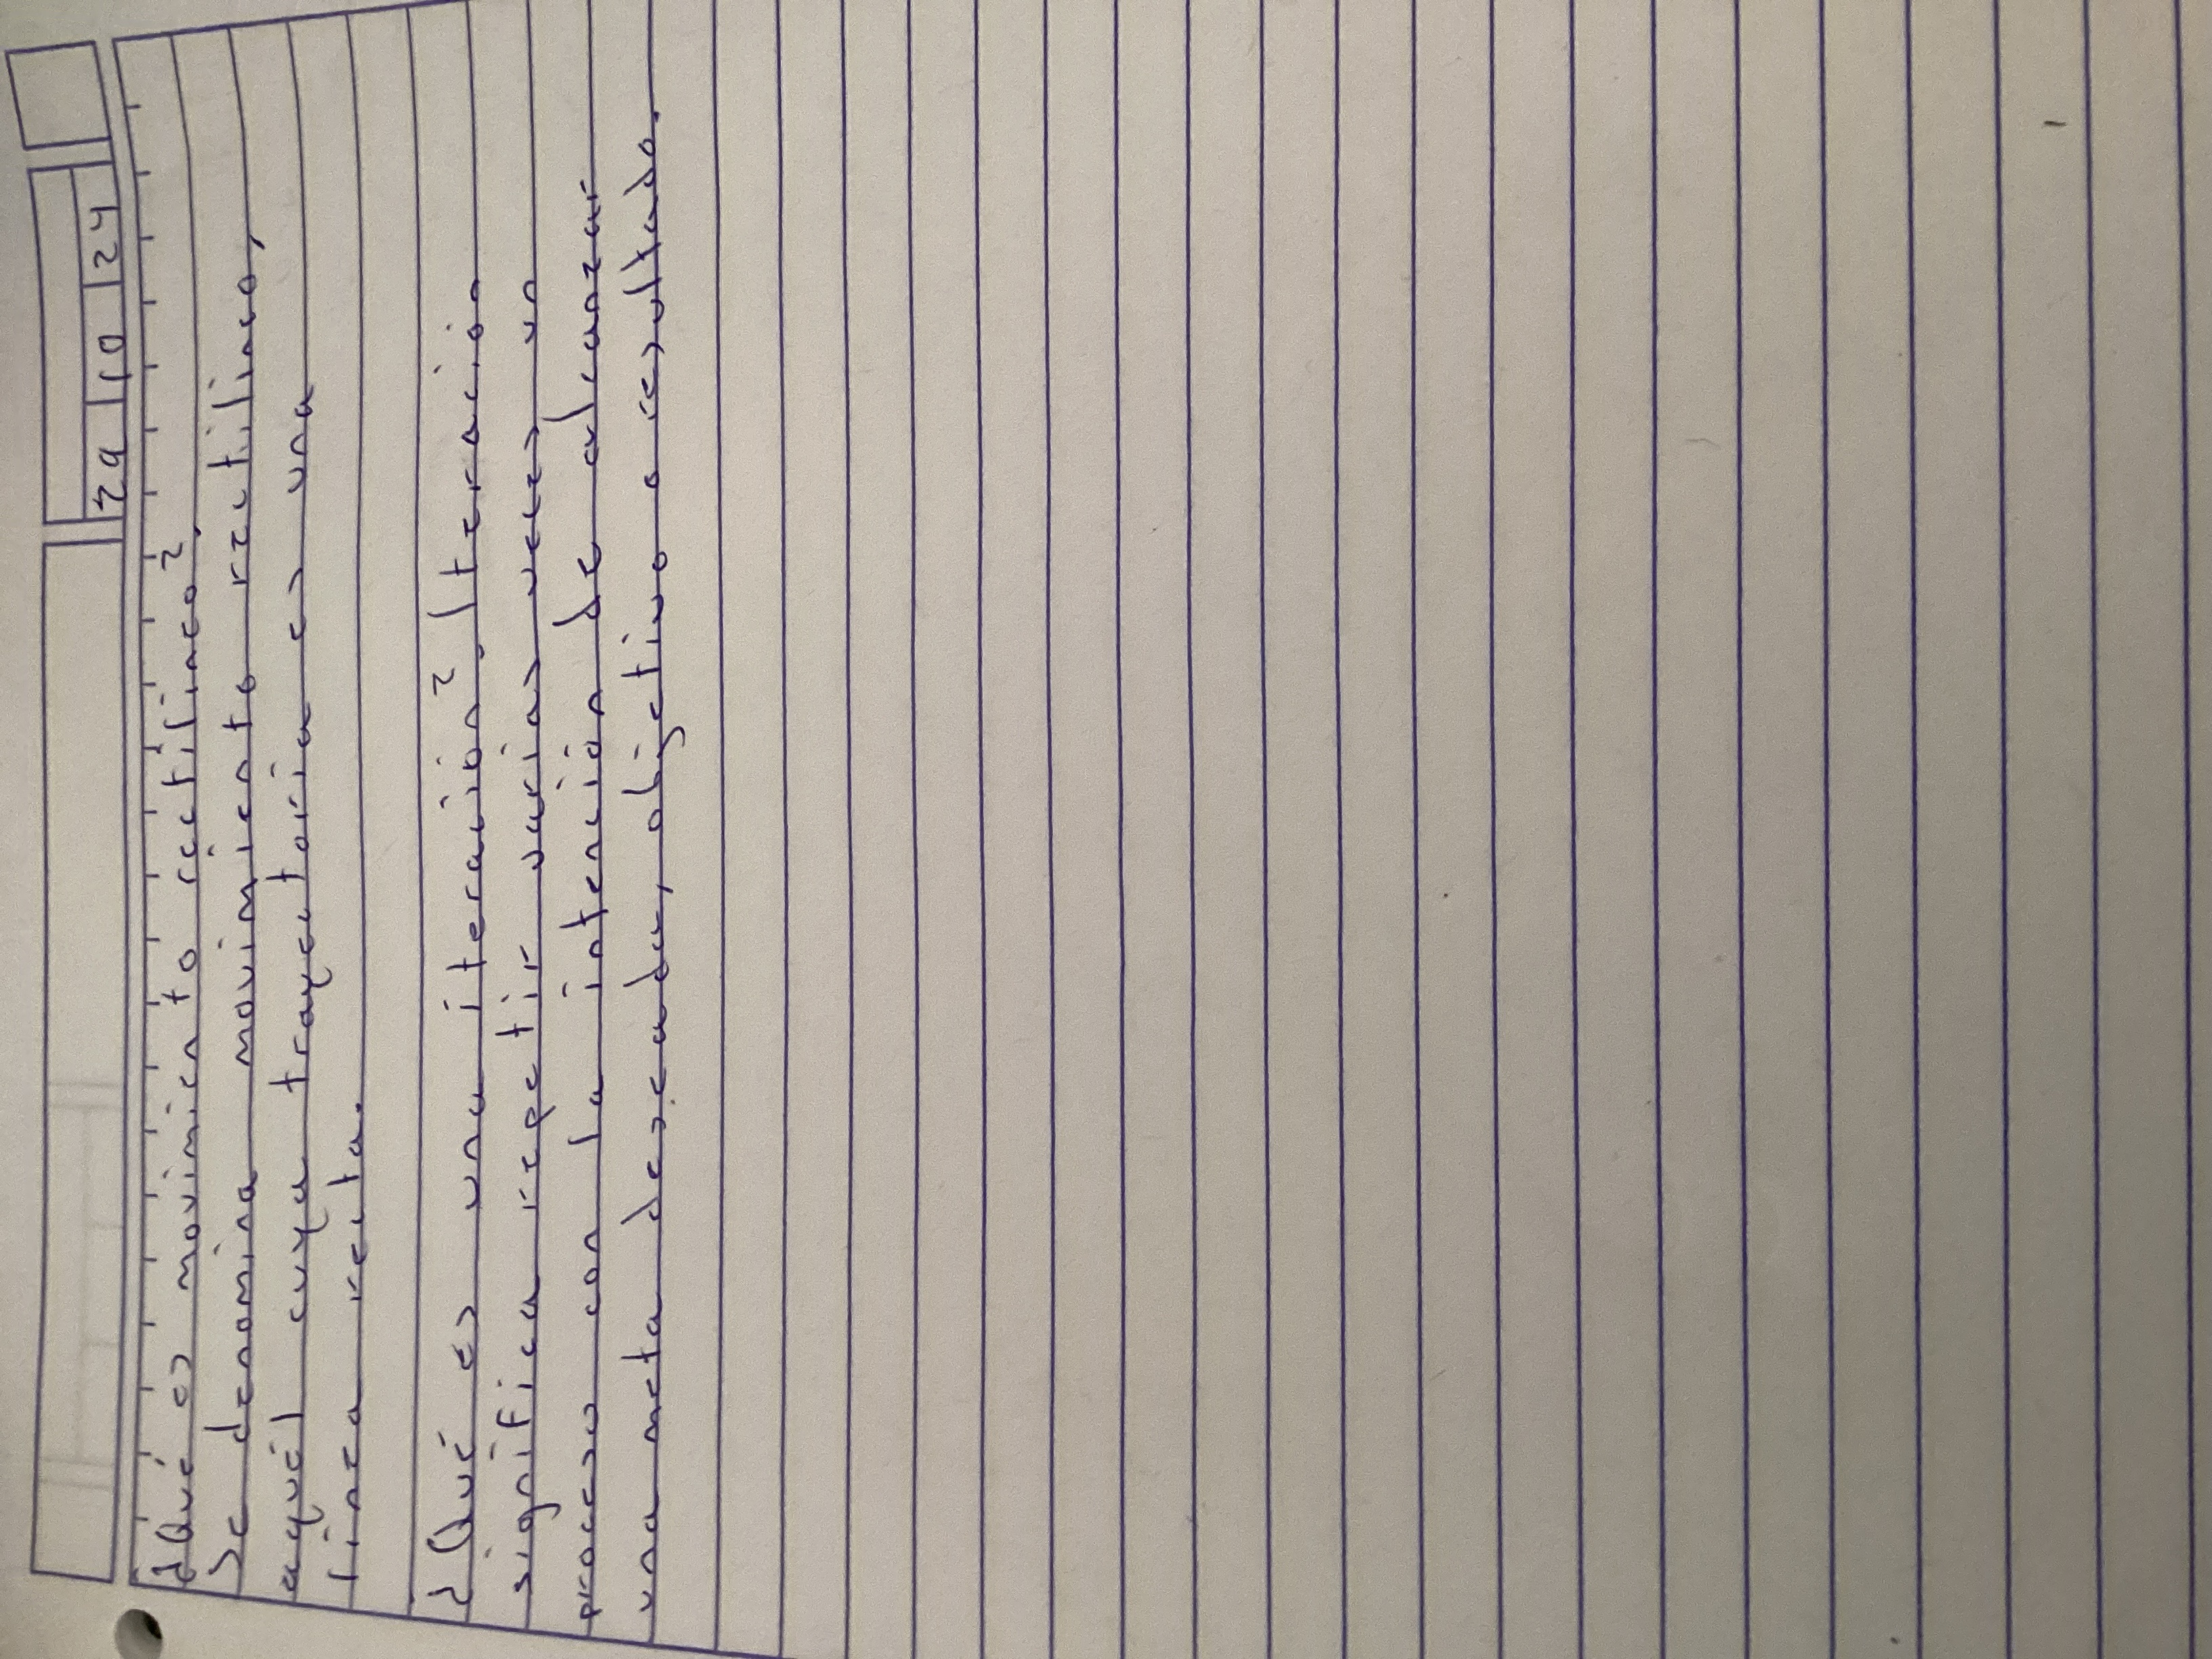 29 10 24
¿Qué es movimiento rectilineo?.
Se denomina movimiento rectilineo,
aquél cuya trayectoria es una
linea recta.
¿Qué es una iteracion?, Iteracion
significa repetir varias veces un
proceso con la intención de alcanzar
una meta deseada, objetivo o resultado.